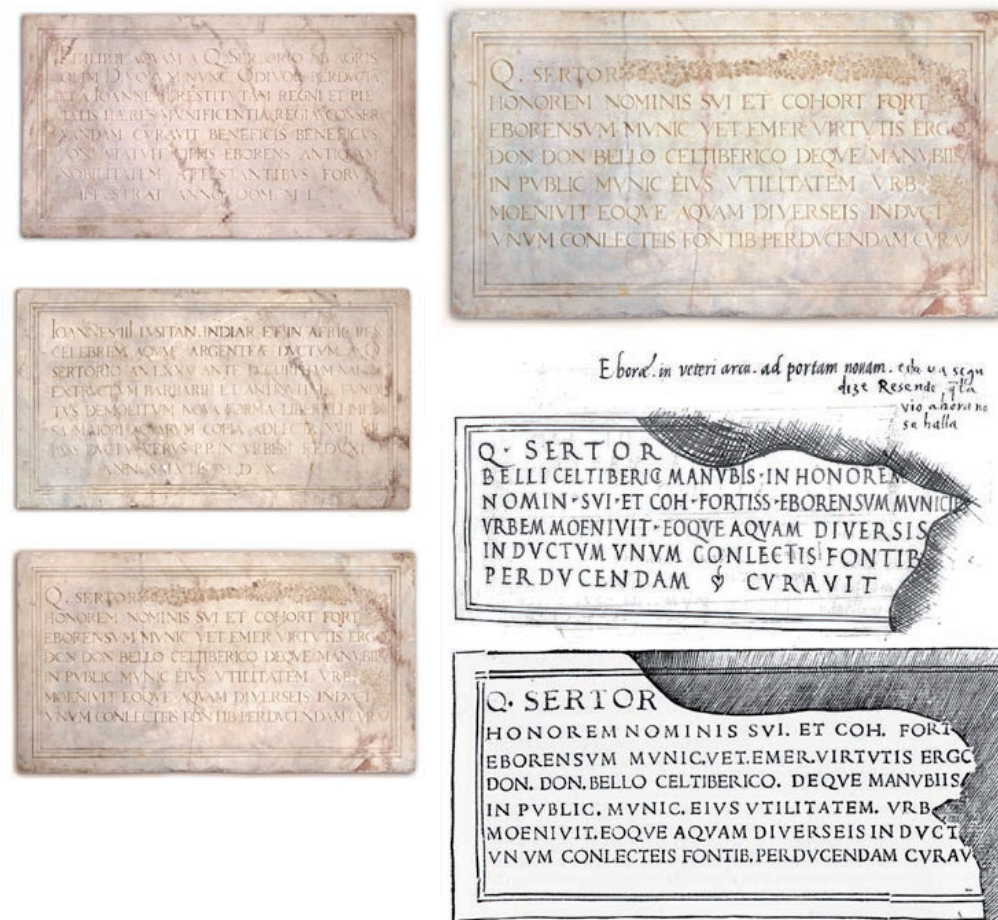 PHILIPPI AQVAM A Q. SERTORIO AB AGRIS
OLIM DIVORVM NVNC
ET A IOANNE III RESTITVTAM REGNI ET PIE
TATIS HÆRES MVNIFICENTIA REGIA CONSER
VANDAM CVRAVIT BENEFICIS BENEFICVS
STATVIT CIPPIS EBORENS ANTIQVAM
NOBILITATEM ATTESTANTIBVS FORVM
ILLVSTRAT ANNO DOM
IOANNES III LVSITAN. INDIAR ET IN AFRIC REX
CELEBREM AQVÆ ARGENTEÆ DVCTVM A Q
SERTORIO AN LXXV ANTE
EXTRVCTVM BARBARIE ET ANTIQVITATE FVNDI
TVS DEMOLITVM NOVA FORMA LIBERALI IMPE
SA MAIORI AQVARVM COPIA ADLECTA
DVCTV IN VRBEM REDVXIT
ANN SALVTIS M D X
Q. SERTOR
HONOREM NOMINIS SVI ET COHORT FORT
EBORENSVM MVNIC VET EMER VIRTVTIS ERGO
DON DON BELLO CELTIBERICO DEQVE MANVBIIS
IN PVBLIC MVNIC EIVS VTILITATEM VRB
MOENIVIT EOQVE AQVAM DIVERSEIS INDVCT
VNVM CONLECTEIS FONTIB PERDVCENDAM CVRA
Q. SERTOR
HONOREM NOMINIS SVI ET COHORT FORT
EBORENSVM MVNIC VET EMER VIRTVTIS ERGO
DON DON BELLO CELTIBERICO DEQVE MANVBIIS
IN PVBLIC MVNIC EIVS VTILITATEM VRB
MOENIVIT EOQVE AQVAM DIVERSEIS INDVCT
VNVM CONLECTEIS FONTIB PERDVCENDAM CVRAV
Eboræ. in veteri arcu. ad portam novam. esta va segu
dize Resende
vio ahora no
se halla
Q · SERTOR
BELLI CELTIBERIC MANVBIS · IN HONOREM
NOMIN · SVI · ET COH · FORTISS · EBORENSVM MVNICIP
VRBEM MOENIVIT · EOQVE AQVAM DIVERSIS
IN DVCTVM VNVM CONLECTIS FONTIB
PERDVCENDAM CVRAVIT
Q. SERTOR
HONOREM NOMINIS SVI. ET COH. FORT
EBORENSVM MVNIC. VET. EMER. VIRTVTIS ERGO
DON. DON. BELLO CELTIBERICO. DEQVE MANVBIIS
IN PVBLIC. MVNIC. EIVS VTILITATEM. VRB
MOENIVIT. EOQVE AQVAM DIVERSEIS IN DVCT
VNVM CONLECTEIS FONTIB. PERDVCENDAM CVRAV